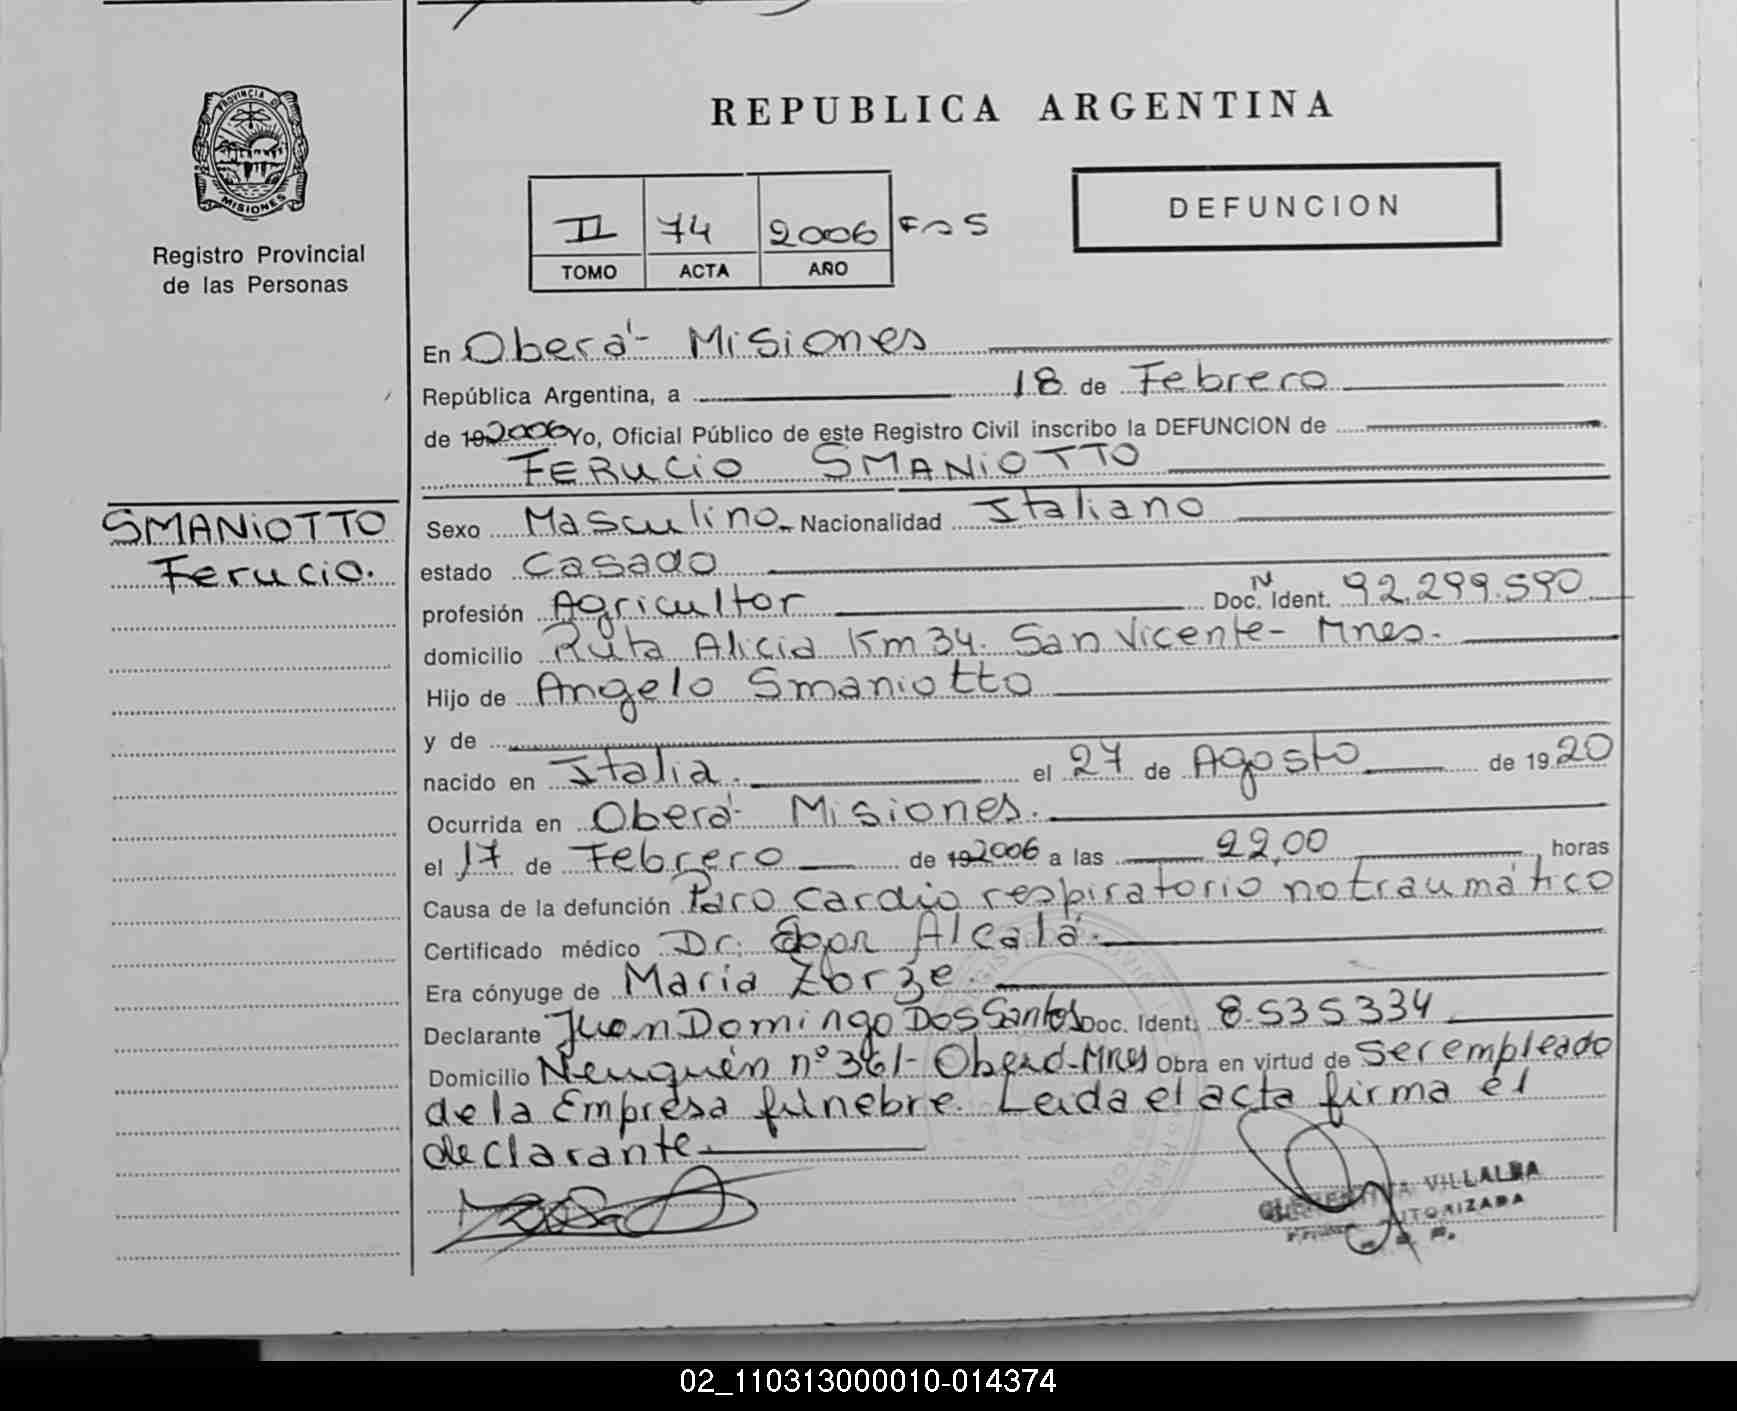 PROVINCIA DE
MISIONES
Registro Provincial
de las Personas
REPUBLICA ARGENTINA
II 74 2006 F=S
TOMO ACTA AÑO
DEFUNCION
En Oberá - Misiones
República Argentina, a 18 de Febrero
de 192006 Yo, Oficial Público de este Registro Civil inscribo la DEFUNCION de
FERUCIO SMANIOTTO
SMANIOTTO
Ferucio.
Sexo Masculino Nacionalidad Italiano
estado Casado
profesión Agricultor Doc. N Ident. 92.299.590
domicilio Ruta Alicia Km 34. San Vicente - Mnes.
Hijo de Angelo Smaniotto
y de
nacido en Italia. el 27 de Agosto de 1920
Ocurrida en Oberá - Misiones.
el 17 de Febrero de 192006 a las 22,00 horas
Causa de la defunción Paro cardio respiratorio no traumático
Certificado médico Dr. Alcalá.
Era cónyuge de Maria Zorze.
Declarante Juan Domingo Dos Santos Doc. Ident. 8.535334
Domicilio Neuquén nº 361 - Oberá - Mnes Obra en virtud de Ser empleado
de la Empresa fúnebre. Leida el acta firma el
declarante.
VILLALBA
AUTORIZADA
02_110313000010-014374